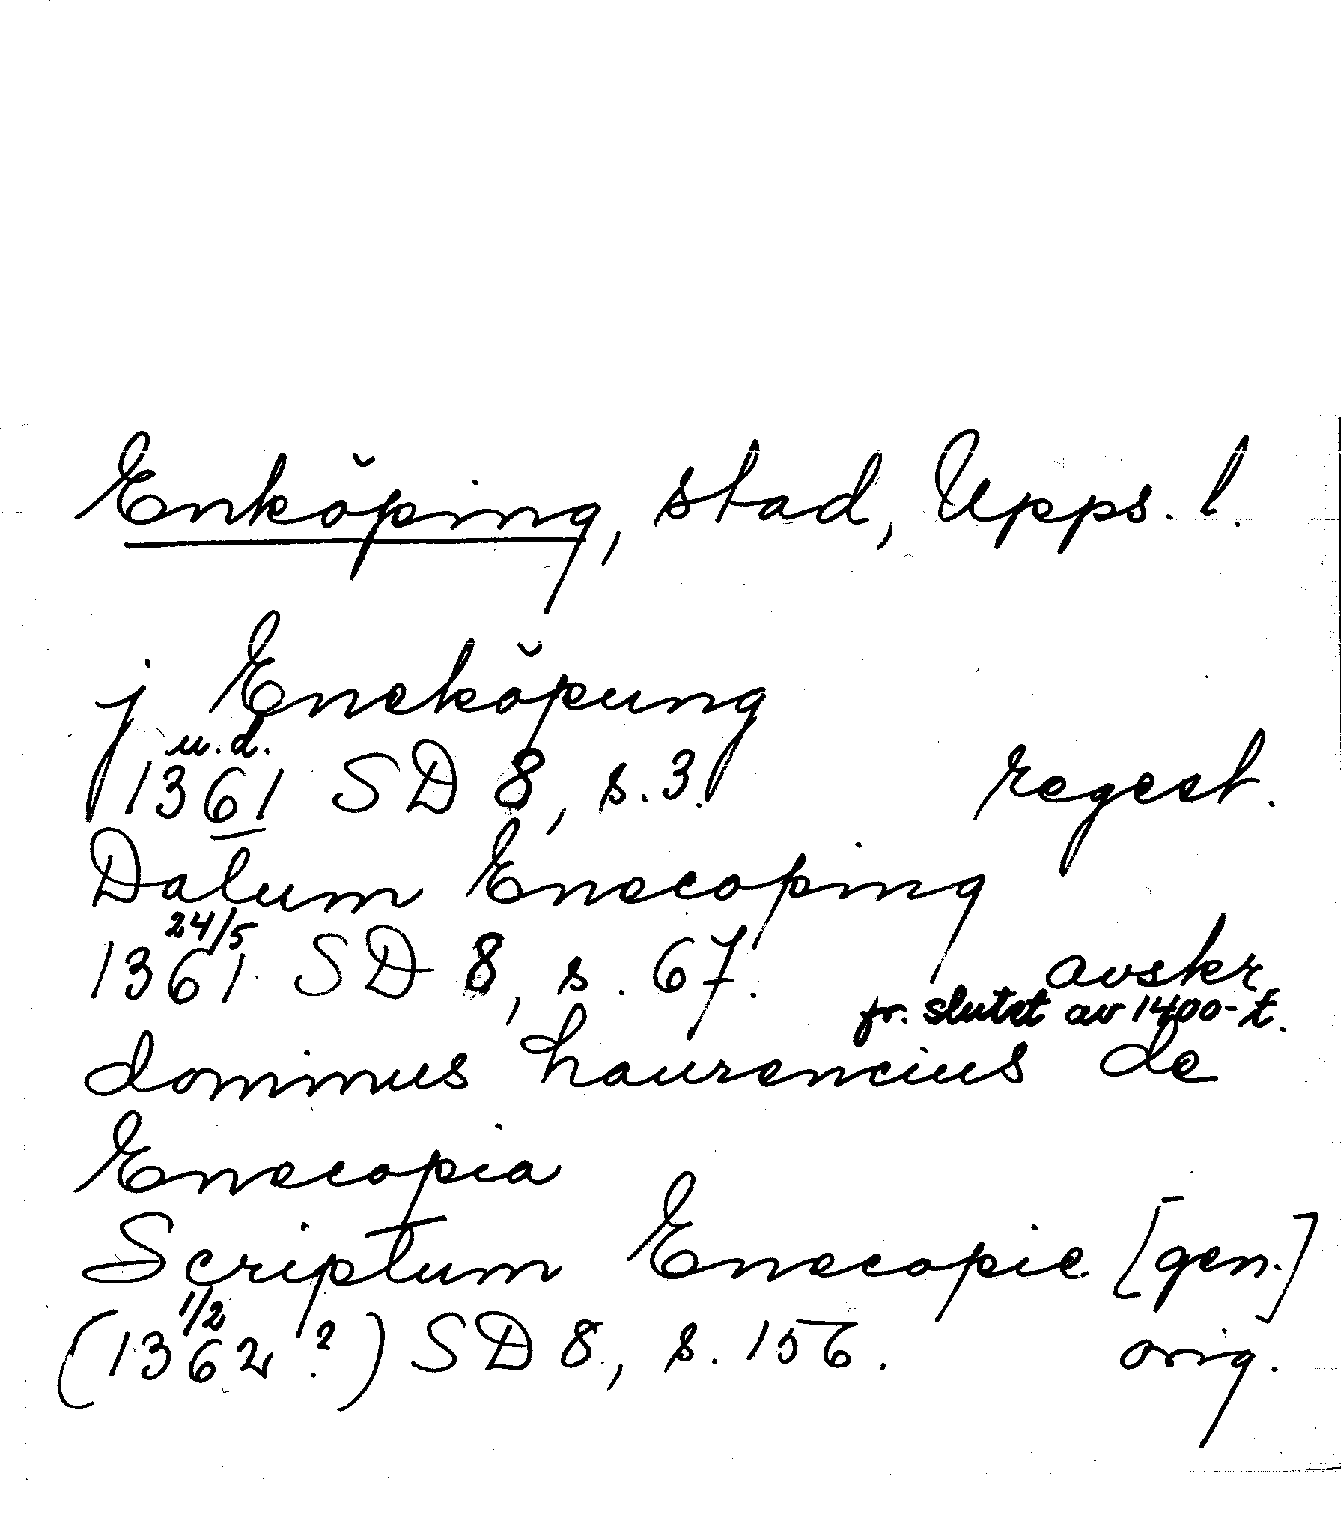 Enköping, stad, Upps. l.
j Eneköpung
u.d.
1361 SD 8, s. 3. regest.
Datum Enecoping
24/5
1361 SD 8, s. 67. avskr.
fr. slutet av 1400-t.
dominus haurencius de
Enecopia
Scriptum Enecopie [gen.]
1/2
(1362?) SD 8, s. 156. orig.